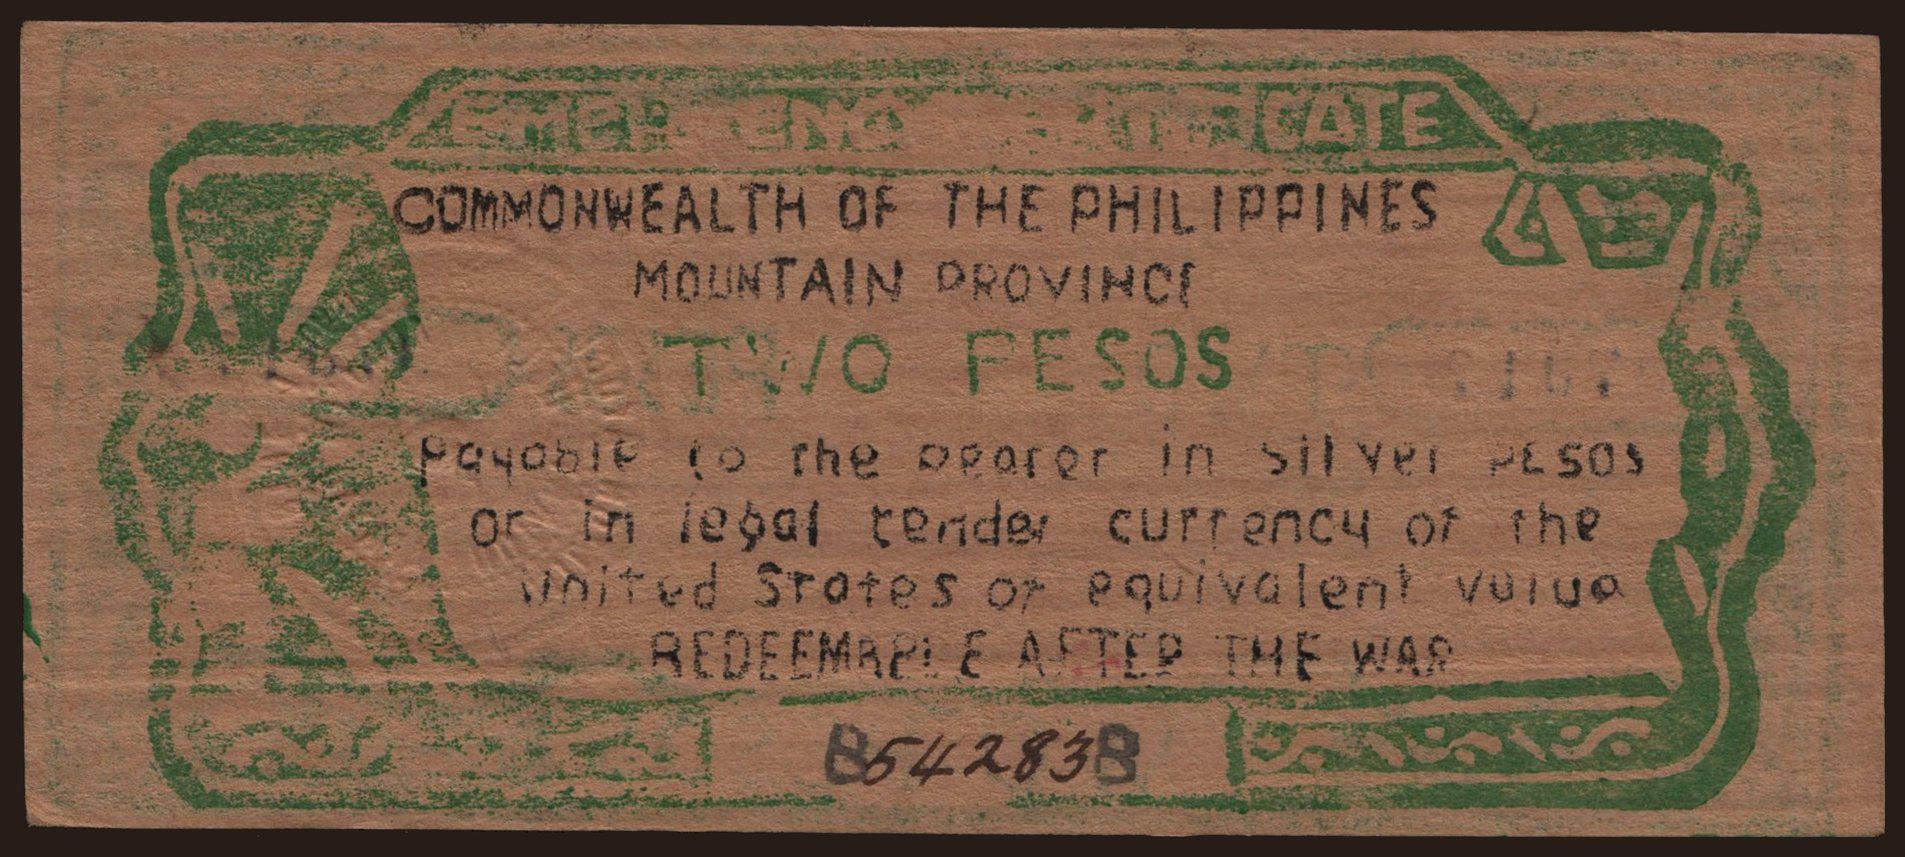 EMERGENC CERTIFICATE
COMMONWEALTH OF THE PHILIPPINES
MOUNTAIN PROVINCE
TWO PESOS
Payable to the bearer in silver PESOS
or in legal tender currency of the
United States or equivalent value
REDEEMABLE AFTER THE WAR
B54283B